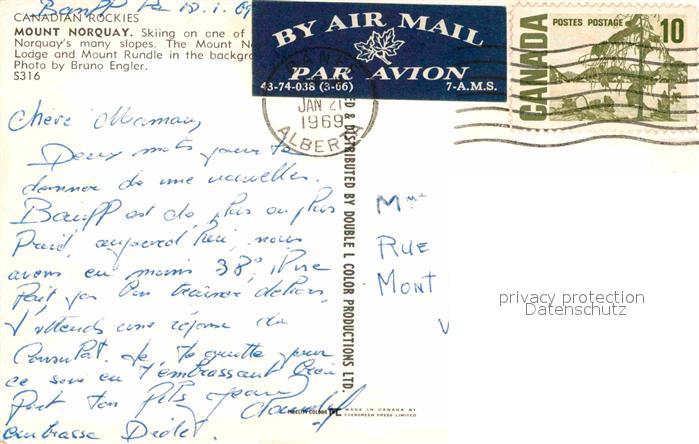 Banff le 18.1.69
CANADIAN ROCKIES
MOUNT NORQUAY. Skiing on one of
Norquay's many slopes. The Mount N
Lodge and Mount Rundle in the backgro
Photo by Bruno Engler.
S316
BY AIR MAIL
PAR AVION
43-74-038 (3-66) 7-A.M.S.
POSTES POSTAGE 10
CANADA
JAN 21
1969
ALBERTA
Chère Maman,
Deux mots pour te
donner de nouvelles.
Banff est de plus en plus
froid, aujourd'hui, nous
avons en moins 38°, il ne
fait pas bon traîner dehors,
J'attends une réponse du
Consulat. Je te quitte pour
ce soir en t'embrassant bien
fort ton fils
embrasse
D & DISTRIBUTED BY DOUBLE L COLOR PRODUCTIONS LTD.
Mme
RUE
MONT
V
privacy protection
Datenschutz
MADE IN CANADA BY
EVERGREEN PRESS LIMITED